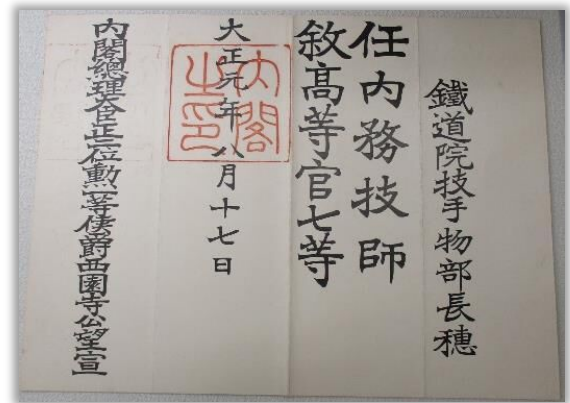 鐵道院技手物部長穗
任内務技師
敘高等官七等
大正元年八月十七日
内閣之印
内閣總理大臣正二位勲一等侯爵西園寺公望宣